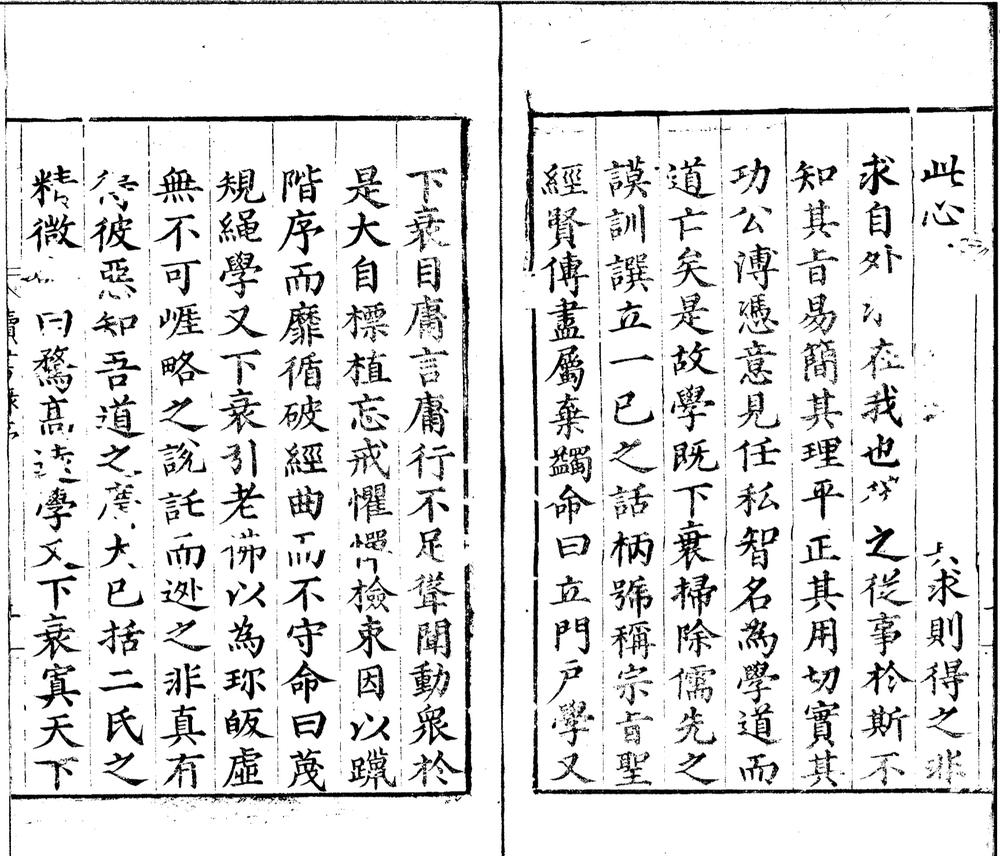 此心求則得之非
求自外在我也之從事於斯不
知其旨易簡其理平正其用切實其
功公溥憑意見任私智名為學道而
道亡矣是故學既下衰掃除儒先之
謨訓譔立一已之話柄號稱宗旨聖
經賢傳盡屬棄蠲命曰立門戶學又
下衰目庸言庸行不足聳聞動衆於
是大自標植忘戒懼憚檢束因以躐
階序而靡循破經曲而不守命曰蔑
規繩學又下衰引老佛以為珎皈虛
無不可崕略之說託而迯之非真有
彼惡知吾道之廣大已括二氏之
精微曰騖高遠學又下衰寘天下